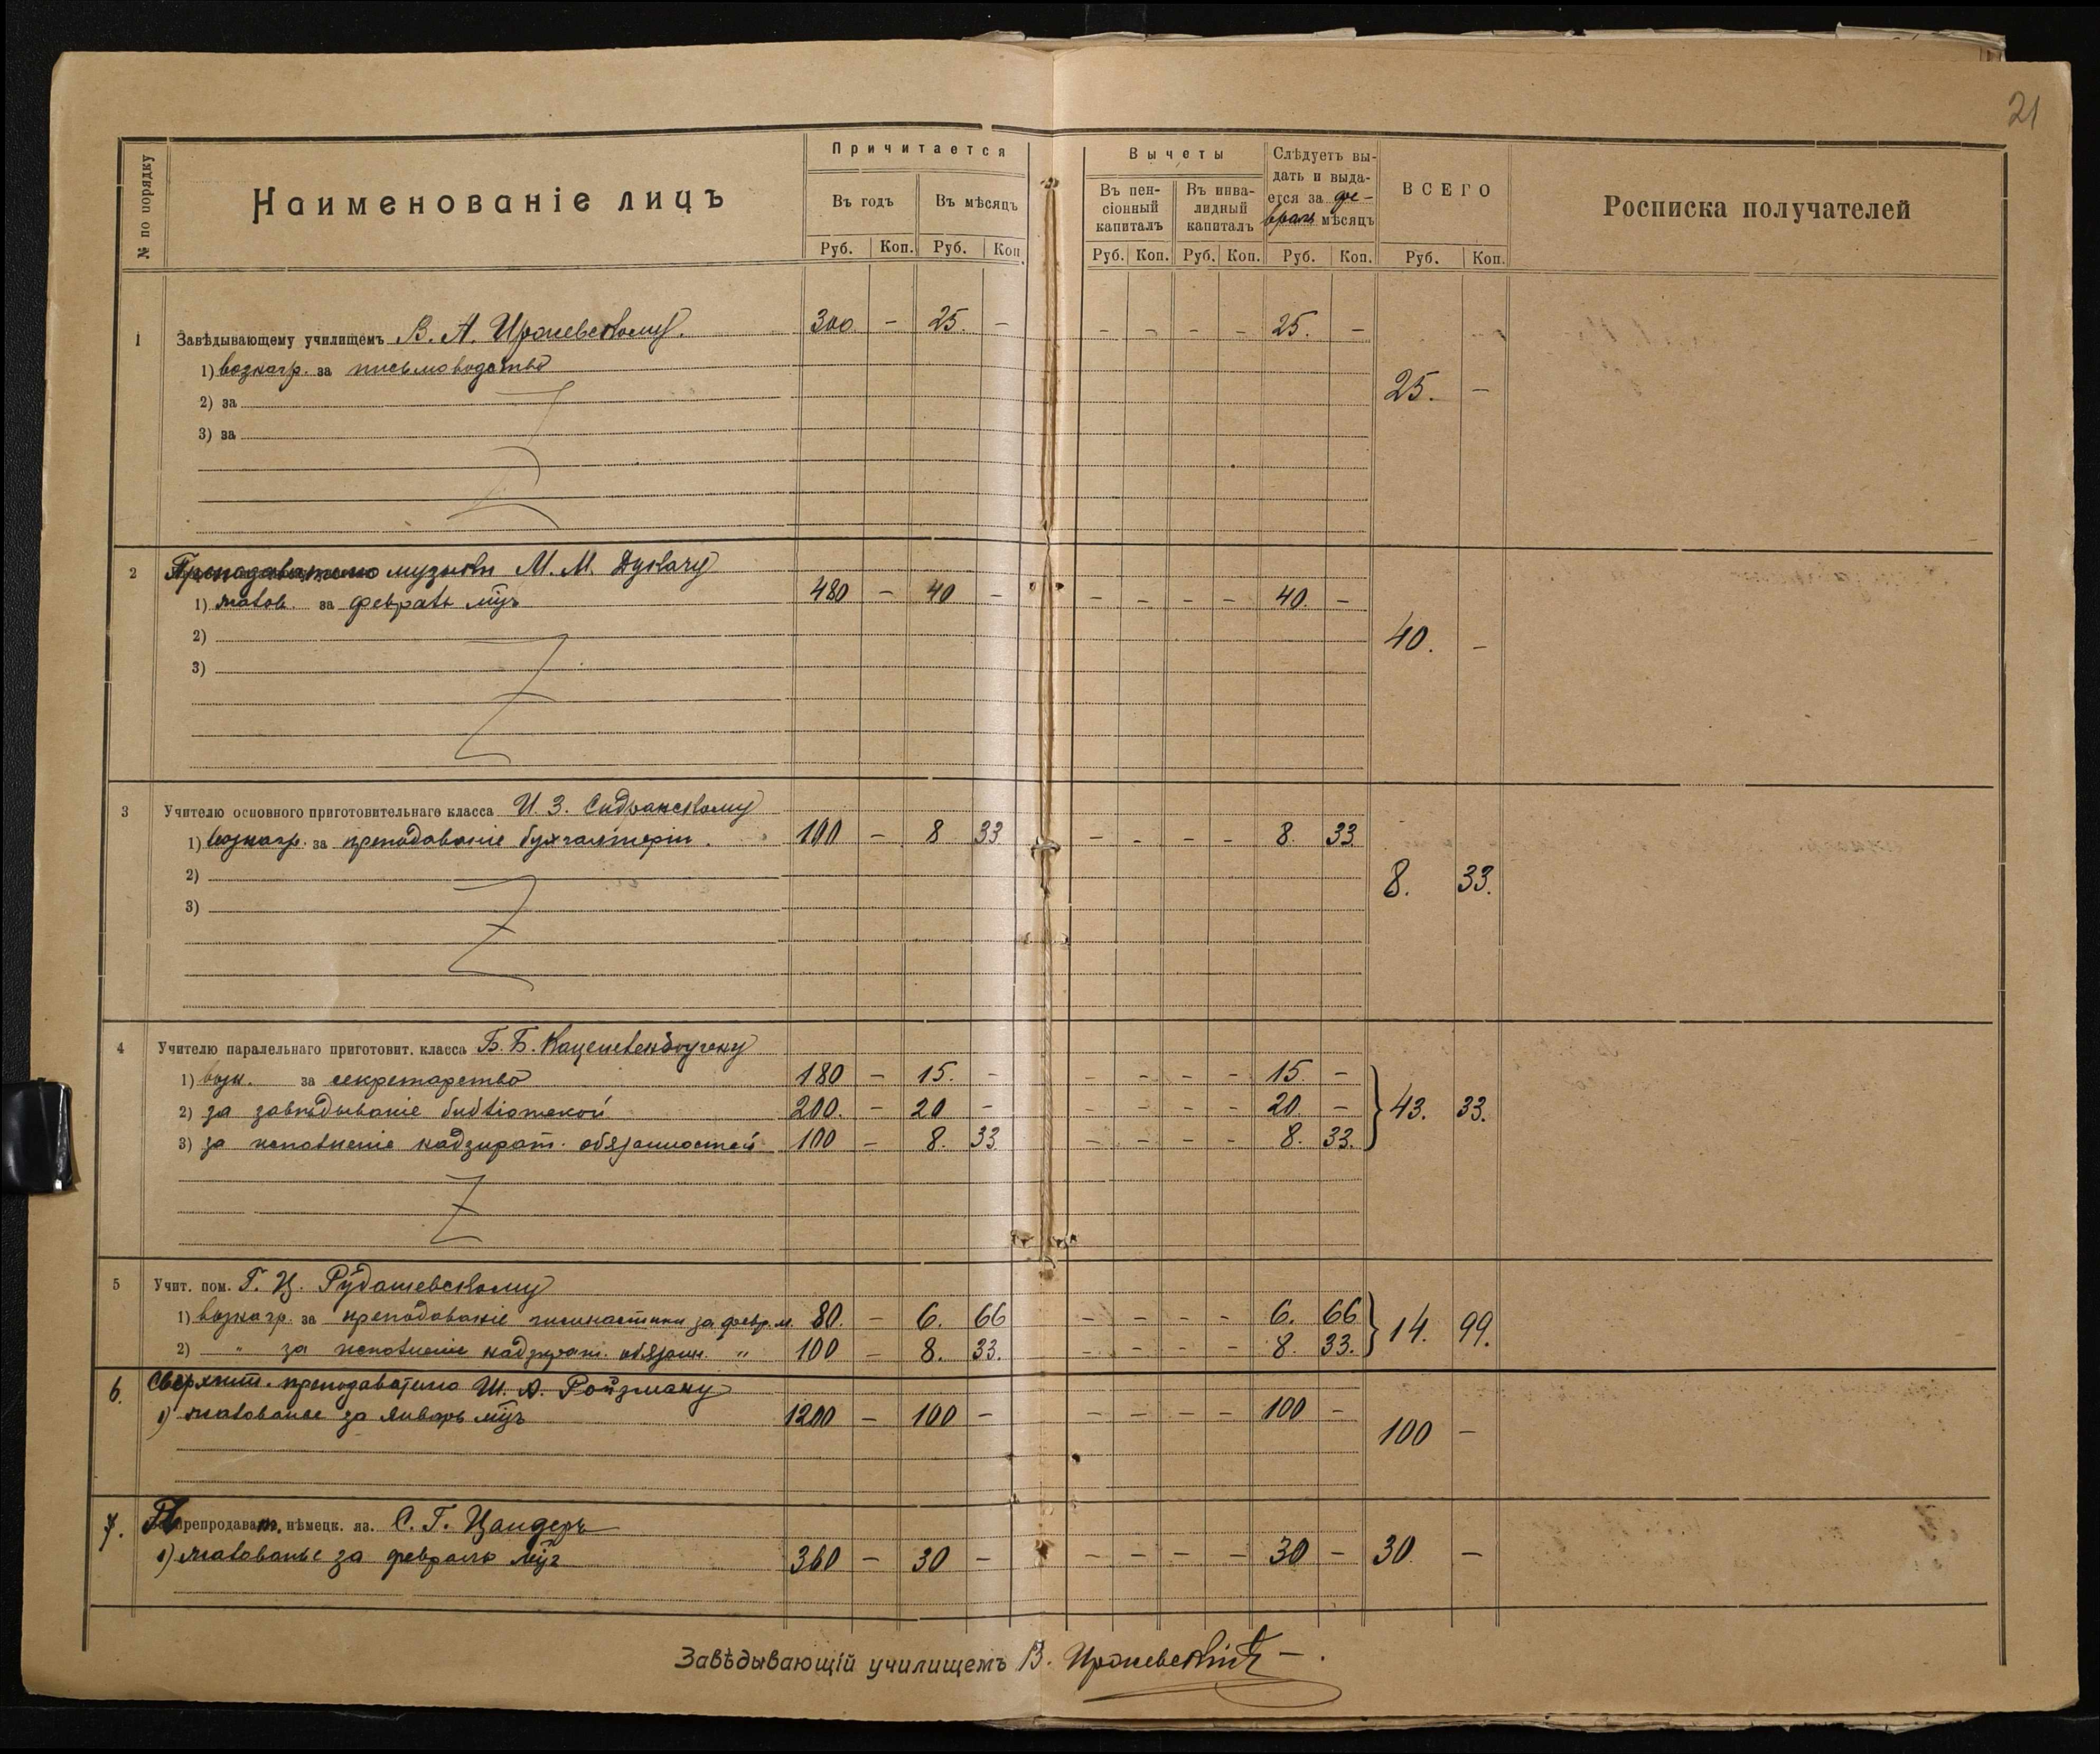 21
№ по порядку
Наименованіе лицъ
Причитается
Въ годъ
Въ мѣсяцъ
Руб. Коп. Руб. Коп.
Вычеты
Въ пен-
сіонный
капиталъ
Въ инва-
лидный
капиталъ
Слѣдуетъ вы-
дать и выда-
ется за фе-
враль мѣсяцъ
ВСЕГО
Росписка получателей
Руб. Коп. Руб. Коп. Руб. Коп. Руб. Коп.
1 Завѣдывающему училищемъ В. А. Иржевскому. 300 – 25. – – – – – 25. –
1) вознагр. за письмоводство
25. –
2) за
3) за
2 Преподавателю музыки М. М. Дукачу
1) жалов. за февраль м-цъ 480 – 40 – – – – – 40. –
2)
40. –
3)
3 Учителю основного приготовительнаго класса И. З.
1) вознагр. за преподованіе бухгалтеріи. 100 – 8 33 – – – – 8. 33.
2)
8. 33.
3)
4 Учителю паралельнаго приготовит. класса Б. Б. Каценеленбогену
1) возн. за секретарство 180 – 15. – – – – – 15. –
2) за завѣдываніе библіотекой 200. – 20 – – – – – 20. – 43. 33.
3) за исполненіе надзират. обязанностей 100 – 8. 33 – – – – 8. 33.
5 Учит. пом. Г. Ц. Рудашевскому
1) вознагр. за преподованіе гимнастики за февр. м. 80. – 6. 66 – – – – 6. 66 14. 99.
2) " за исполненіе надзират. обязан. " 100 – 8. 33. – – – – 8. 33.
6. Сверхшт. преподавателю Ш. А. Ройзману
1) жалованье за январь м-цъ 1200 – 100 – – – – – 100 –
100 –
7. преподават. нѣмецк. яз. С. Г. Цандеръ
1) жалованье за февраль м-цъ 360 – 30 – – – – – 30 – 30 –
Завѣдывающій училищемъ В. Иржевскій